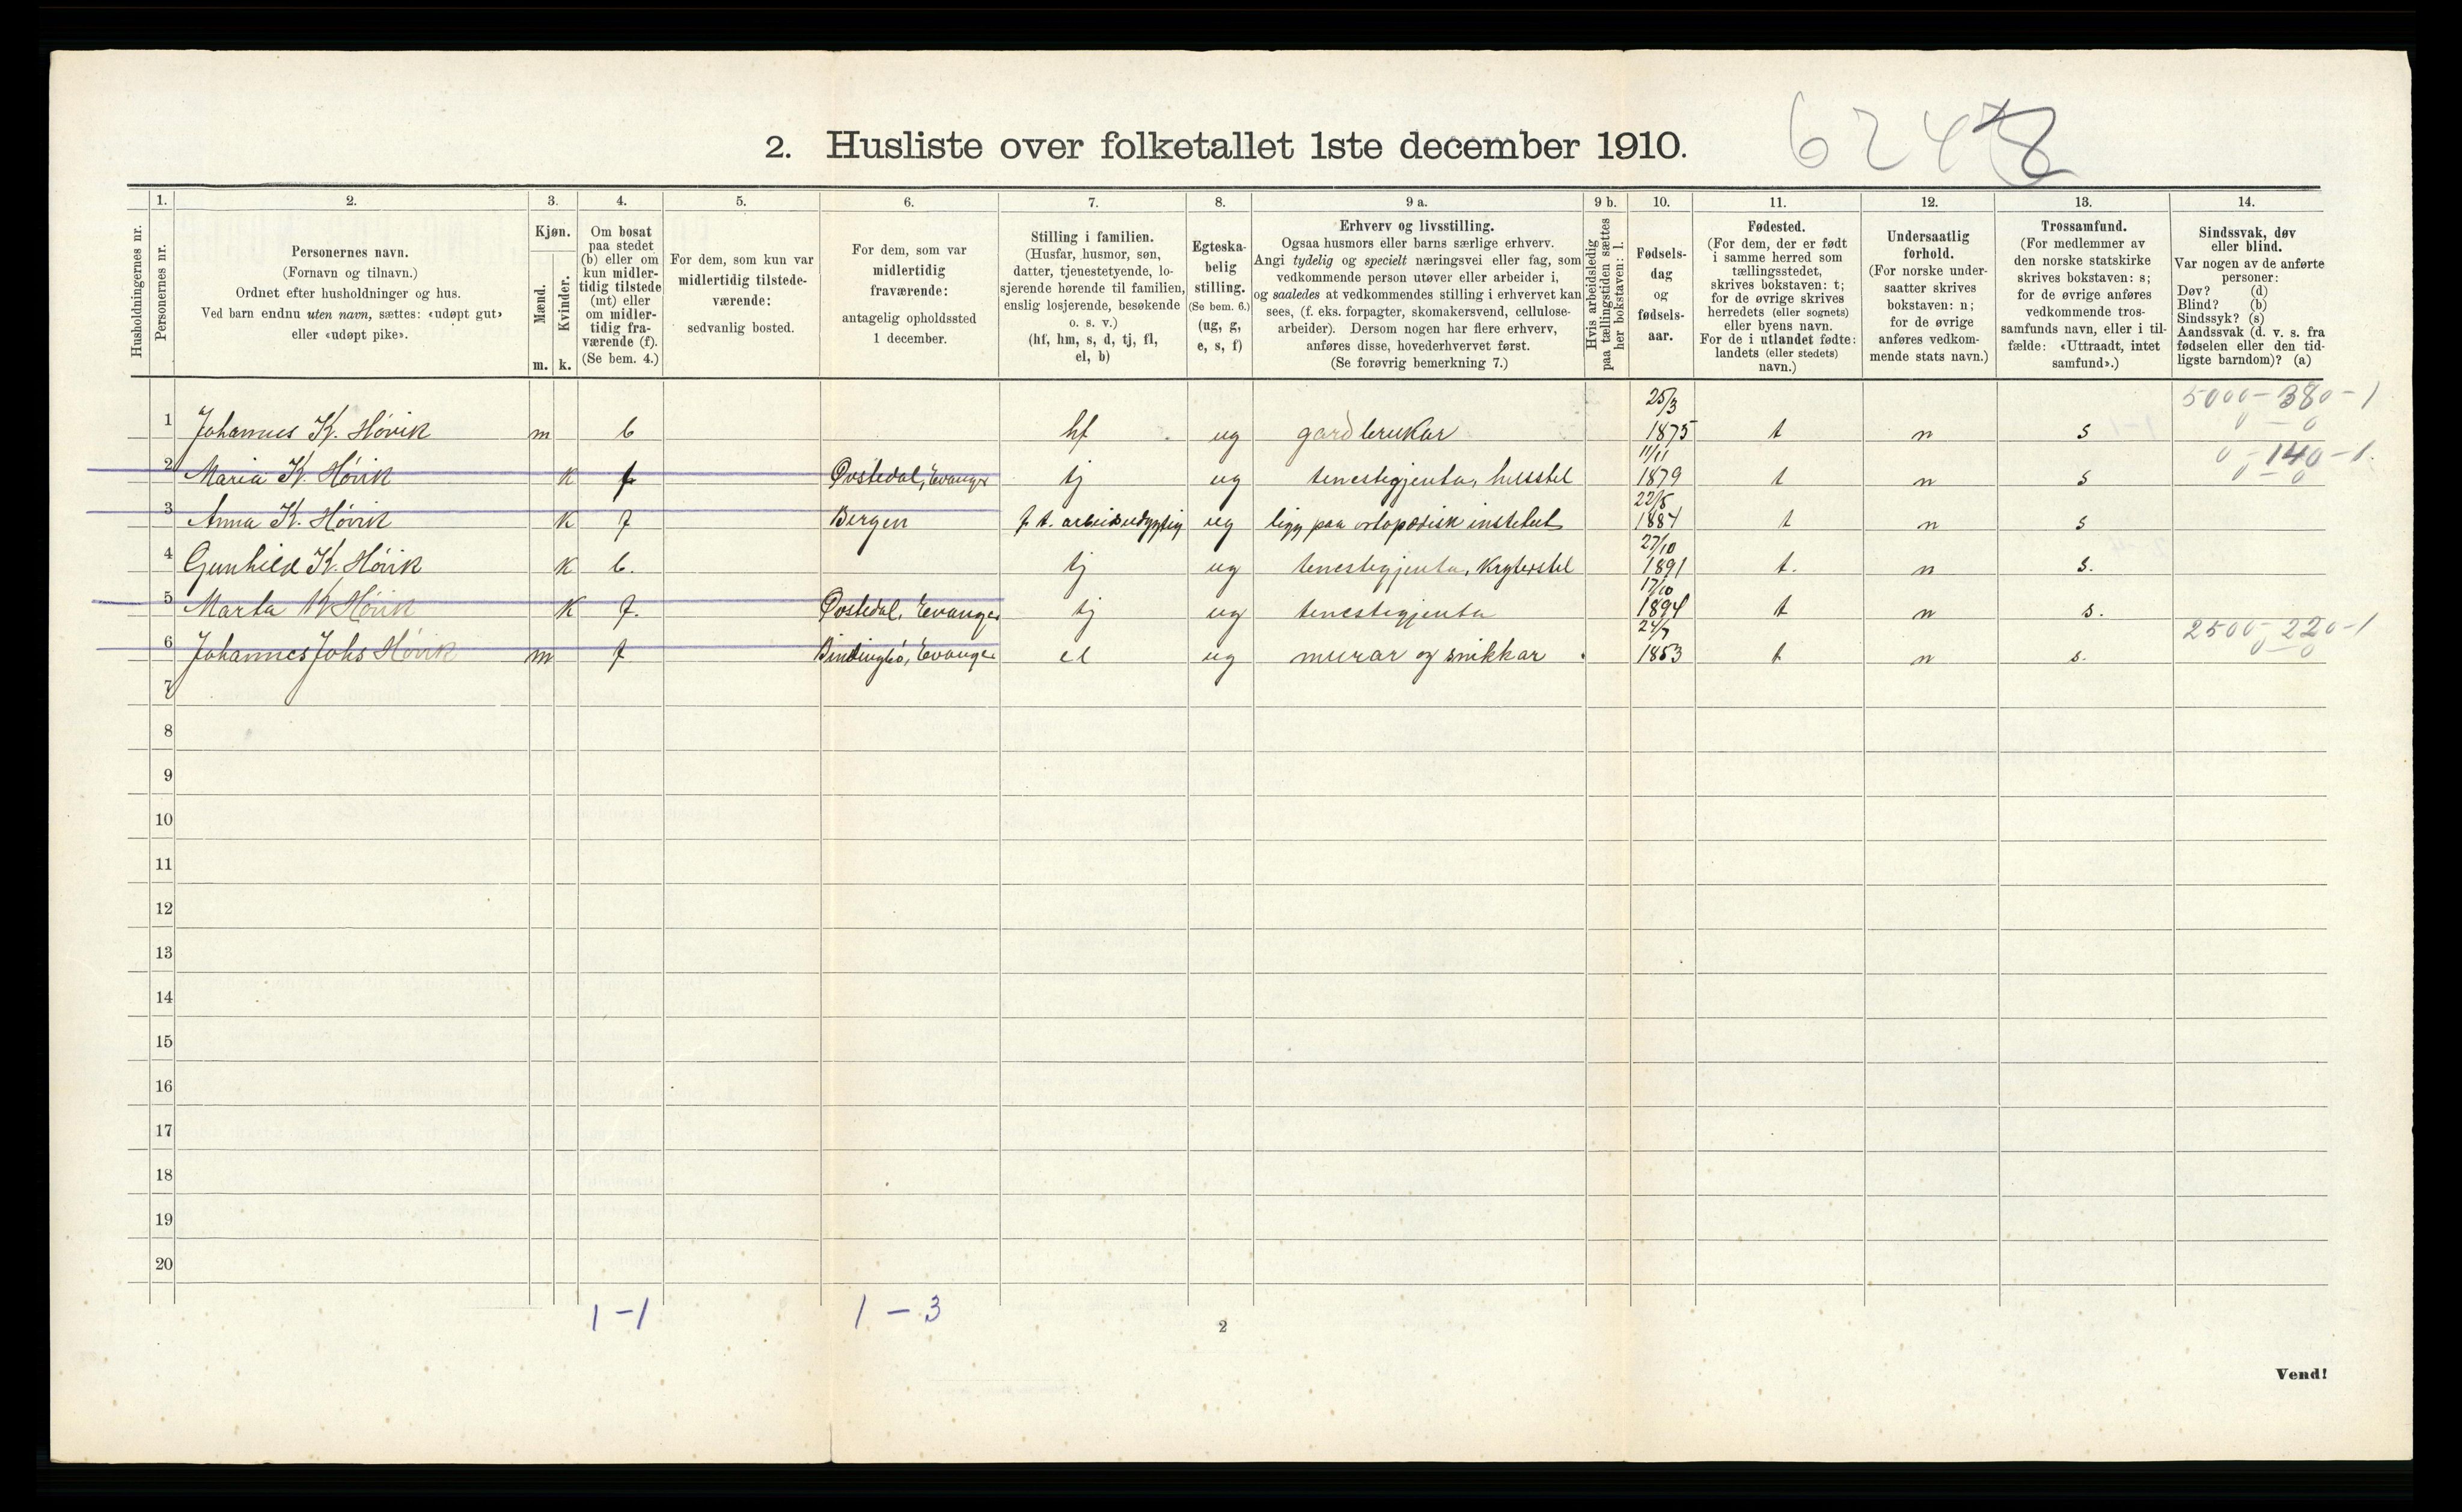 2. Husliste over folketallet 1ste december 1910.
1. 2. 3. 4. 5. 6. 7. 8. 9 a. 9 b. 10. 11. 12. 13. 14.
Husholdningernes nr.
Personernes nr.
Personernes navn.
(Fornavn og tilnavn.)
Ordnet efter husholdninger og hus.
Ved barn endnu uten navn, sættes: «udøpt gut»
eller «udøpt pike».
Kjøn.
Mænd.
Kvinder.
m. k.
Om bosat
paa stedet
(b) eller om
kun midler-
tidig tilstede
(mt) eller
om midler-
tidig fra-
værende (f).
(Se bem. 4.)
For dem, som kun var
midlertidig tilstede-
værende:
sedvanlig bosted.
For dem, som var
midlertidig
fraværende:
antagelig opholdssted
1 december.
Stilling i familien.
(Husfar, husmor, søn,
datter, tjenestetyende, lo-
sjerende hørende til familien,
enslig losjerende, besøkende
o. s. v.)
(hf, hm, s, d, tj, fl,
el, b)
Egteska-
belig
stilling.
(Se bem. 6.)
(ug, g,
e, s, f)
Erhverv og livsstilling.
Ogsaa husmors eller barns særlige erhverv.
Angi tydelig og specielt næringsvei eller fag, som
vedkommende person utøver eller arbeider i,
og saaledes at vedkommendes stilling i erhvervet kan
sees, (f. eks. forpagter, skomakersvend, cellulose-
arbeider). Dersom nogen har flere erhverv,
anføres disse, hovederhvervet først.
(Se forøvrig bemerkning 7.)
Hvis arbeidsledig
paa tællingstiden sættes
her bokstaven: l.
Fødsels-
dag
og
fødsels-
aar.
Fødested.
(For dem, der er født
i samme herred som
tællingsstedet,
skrives bokstaven: t;
for de øvrige skrives
herredets (eller sognets)
eller byens navn.
For de i utlandet fødte:
landets (eller stedets)
navn.)
Undersaatlig
forhold.
(For norske under-
saatter skrives
bokstaven: n;
for de øvrige
anføres vedkom-
mende stats navn.)
Trossamfund.
(For medlemmer av
den norske statskirke
skrives bokstaven: s;
for de øvrige anføres
vedkommende tros-
samfunds navn, eller i til-
fælde: «Uttraadt, intet
samfund».)
Sindssvak, døv
eller blind.
Var nogen av de anførte
personer:
Døv? (d)
Blind? (b)
Sindssyk? (s)
Aandssvak (d. v. s. fra
fødselen eller den tid-
ligste barndom)? (a)
1 Johannes K. Høvik m b hf ug gardbrukar 25/3 1875 t n s 5000-380-1 0-0
2 Maria K. Høvik k f Øvstedal, Evanger tj ug tenestegjenta, husstel 11/11 1879 t n s 0-140-1. 0-0
3 Anna K. Høvik k f Bergen f. t. arbeidsudygtig ug ligg paa ortopædisk institut 22/8 1884 t n s
4 Gunhild K. Høvik k b. tj ug tenestegjenta, krøterstel 27/10 1891 t. n s.
5 Marta K Høvik k f. Øvstedal, Evanger tj ug tenestegjenta 17/10 1894 t n s.
6 Johannes Johs Høvik m f Bindingbø, Evanger el ug murar og snikkar 24/7 1853 t n s. 2500-220-1 0-0
7
8
9
10
11
12
13
14
15
16
17
18
19
20
1-1 1-3
2
Vend!